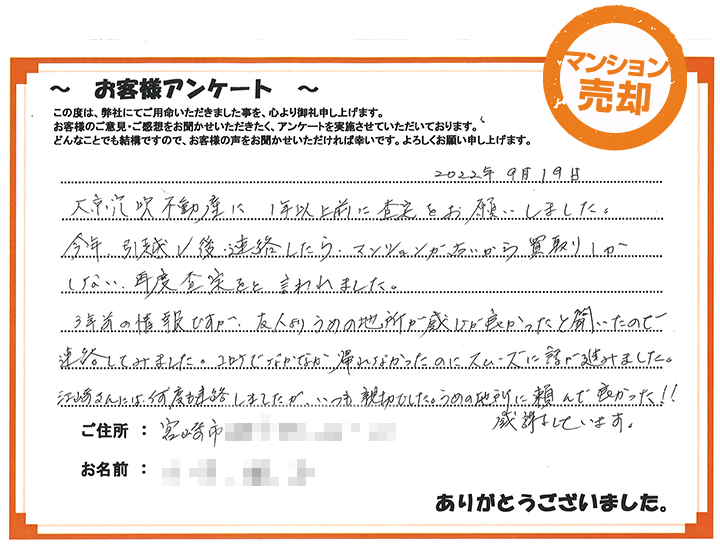 マンション
売却
～ お客様アンケート ～
この度は、弊社にてご用命いただきました事を、心より御礼申し上げます。
お客様のご意見・ご感想をお聞かせいただきたく、アンケートを実施させていただいております。
どんなことでも結構ですので、お客様の声をお聞かせいただければ幸いです。よろしくお願い申し上げます。
2022年9月19日
大京穴吹不動産に 1年以上前に査定をお願いしました。
今年、引越し後、連絡したら、マンションが古いから買取りしか
しない、再度査定をと言われました。
3年前の情報ですが、友人よりうめの地所が感じが良かったと聞いたので
連絡してみました。コロナでなかなか帰れなかったのにスムーズに話が進みました。
江崎さんには、何度も連絡しましたが、いつも親切でした。うめの地所に頼んで良かった!!
感謝しています。
ご住所 ： 宮崎市
お名前 ：
ありがとうございました。